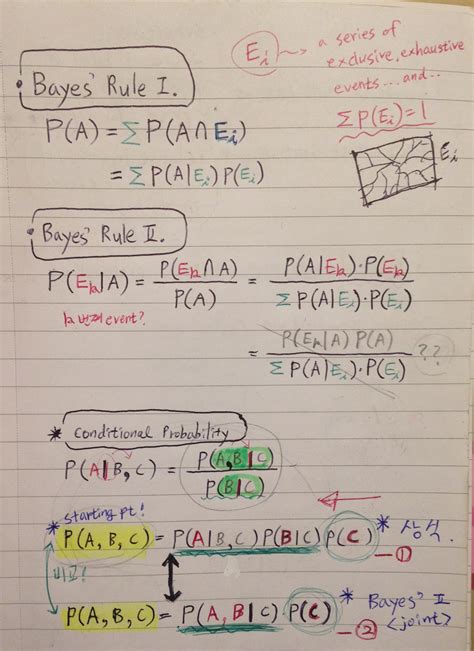 Ei → a series of
exclusive, exhaustive
events... and...
ΣP(Ei)=1
Ei
• Bayes' Rule I.
P(A) = ΣP(A∩Ei)
= ΣP(A|Ei)P(Ei)
• Bayes' Rule II.
P(Ek|A) = P(Ek∩A) / P(A) = P(A|Ek)·P(Ek) / ΣP(A|Ei)·P(Ei)
k번째 event?
= P(Ek|A)P(A) / ΣP(A|Ei)·P(Ei) ??
* Conditional Probability
P(A|B,C) = P(A,B|C) / P(B|C)
starting pt!
* P(A,B,C) = P(A|B,C)P(B|C)P(C) * 상식.
—①
비교?
P(A,B,C) = P(A,B|C)·P(C) * Bayes' II
—② <joint>